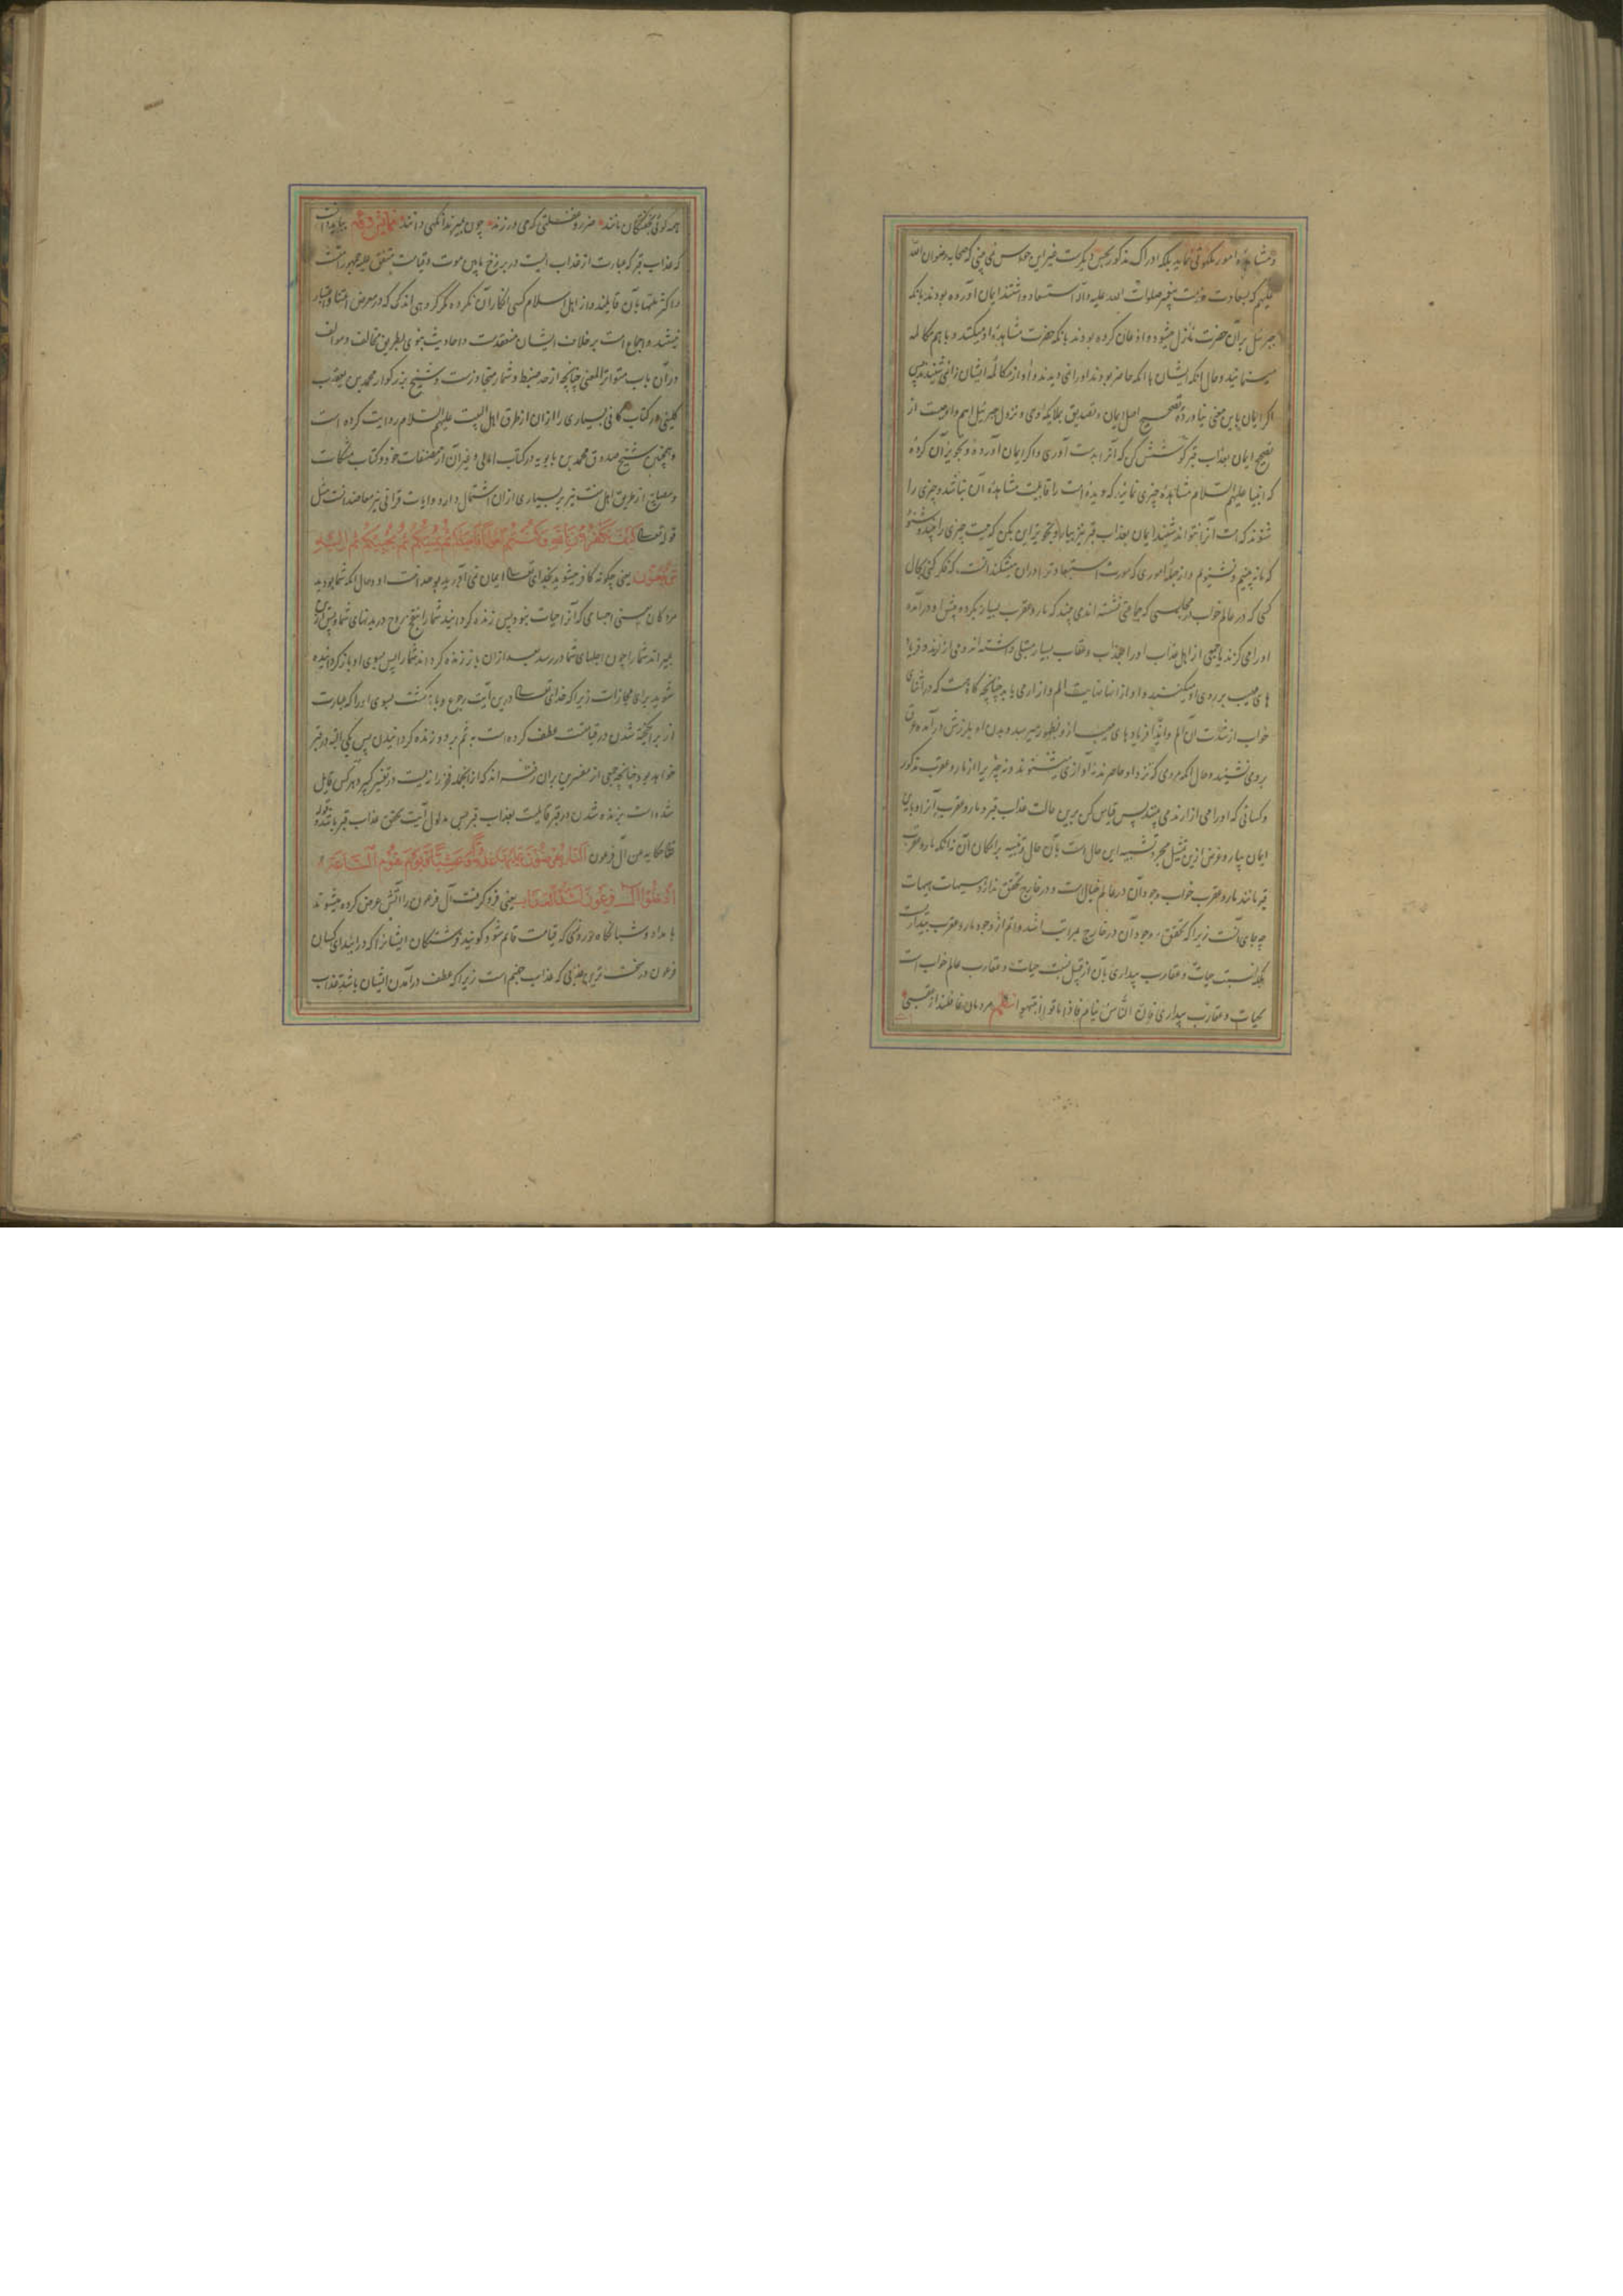 و مشاهده امور ملکوتی نماید بلکه ادراک مذکور بحس دیکرست غیر این حواس نمی بینی که صحابه رضوان الله
علیهم که بسعادت صحبت پیغمبر صلوات الله علیه وآله استسعاد داشتند ایمان آورده بودند بانکه
جبرئیل بر آن حضرت نازل میشود و اذعان کرده بودند بانکه حضرت مشاهده او میکند و با هم مکالمه
مینمایند و حال انکه ایشان با انکه حاضر بودند او را نمی دیدند و آواز مکالمه ایشان را نمی شنیدند پس
اکر ایمان باین معنی نیاورده تصحیح اصل ایمان و تصدیق بملایکه و وحی و نزول جبرئیل اهم و اوجبست از
تصحیح ایمان بعذاب قبر کوشش کن که آنرا بدست آوری و اکر ایمان آورده و تجویز آن کرده
که انبیا علیهم السلام مشاهده چیزی نمایند که دیده امت را قابلیت مشاهده آن نباشد و چیزی را
شنوند که امت آنرا نتوانند شنید ایمان بعذاب قبر نیز بیار و تجویز این بکن که میت چیزی را بیند و شنود
که ما نه بینیم و نشنویم و از جمله اموری که سورت استبعاد ترا در آن میشکند آنست که فکر کنی بحال
کسی که در عالم خواب در مجلسی که جماعتی نشسته اند می بیند که مار و عقرب بسیار بکرد و پیش او در آمده
او را می کزند یا جمعی از اهل عذاب او را بعذاب و عقاب بسیار مبتلی داشته اند و می آزارند و فریاد
های مهیب بر روی او میکنند و او از آنها نهایت الم و آزار می یابد چنانچه کاه هست که در اثنای
خواب از شدت آن الم و ایذا فریادهای مهیب از و بظهور میرسد و بدن او بلرزش در آمده عرق
بر وی نشیند و حال انکه مردمی که نزد او حاضرند نه آوازی میشنوند و نه چیزی را از مار و عقرب مذکور
و کسانی که او را می آزارند می بینند پس قیاس کن برین حالت عذاب قبر و مار و عقرب آنرا و باین
ایمان بیار و غرض ازین تمثیل مجرد تشبیه این حال است بآن حال و تنبیه بر امکان آن نه انکه مار و عقرب
قبر مانند مار و عقرب خواب وجود آن در عالم خیال است و در خارج تحقق ندارد هیهات هیهات
چه جای آنست زیرا که تحقق و وجود آن در خارج بمراتب اشد و اتم از وجود مار و عقرب بیداریست
بلکه نسبت حیات و عقارب بیداری بآن از قبیل نسبت حیات و عقارب عالم خواب است
بحیات و عقارب بیداری فان الناس نیام فاذا ماتوا انتبهوا نظم مردمان غافلند از عقبی
همه کوئی بخفتکان مانند ضرر و غفلتی که می ورزند چون بمیرند آنکهی دانند نمایش دوم بباید دانست
که عذاب قبر که عبارت از عذاب ایست در برزخ مابین موت و قیامت متفق علیه جمهور امتست
و اکثر ملتها بآن قایلند و از اهل اسلام کسی انکار آن نکرده مکر کروهی اندک که در معرض اعتنا و اعتبار
نیستند و اجماع است بر خلاف ایشان منعقدست و احادیث نبوی بطریق مخالف و موالف
در آن باب متواتر المعنی چنانچه از حد ضبط و شمار متجاوزست و شیخ بزرکوار محمد بن یعقوب
کلینی در کتاب کافی بسیاری را از آن از طرق اهل البیت علیهم السلام روایت کرده است
و همچنین شیخ صدوق محمد بن بابویه در کتاب امالی و غیر آن از مصنفات خود و کتاب مشکات
و مصابیح از طریق اهل سنت نیز بر بسیاری از آن اشتمال دارد و آیات قرآنی نیز معاضد آنست مثل
قوله تعالی کَیْفَ تَکْفُرُونَ بِاللّهِ وَکُنْتُمْ اَمْوَاتًا فَاَحْیَاکُمْ ثُمَّ یُمِیتُکُمْ ثُمَّ یُحْیِیکُمْ ثُمَّ اِلَیْهِ
تُرْجَعُونَ یعنی چکونه کافر میشوید بخدای تعالی و ایمان نمی آورید بوحدانیت او و حال انکه شما بودید
مردکان یعنی اجسامی که آنرا حیات نبود پس زنده کردانید شما را بنفخ روح در بدنهای شما و پس ازان
بمیراند شما را چون اجلهای شما در رسد بعد از آن باز زنده کرداند شما را پس بسوی او باز کردانیده
شوید برای مجازات زیرا که خدای تعالی درین آیت رجوع و باز کشت بسوی او را که عبارت
از برانکیخته شدن در قیامتست عطف کرده است به ثم بر دو زنده کردانیدن پس یکی البته در قبر
خواهد بود چنانچه جمعی از مفسرین بر آن رفته اند که از انجمله فخر رازیست در تفسیر کبیر و هر کس قایل
شده است بزنده شدن در قبر قایلست بعذاب قبر پس مدلول آیت تحقق عذاب قبر باشد و قوله
تعالی حکایه عن آل فرعون اَلنَّارُ یُعْرَضُونَ عَلَیْهَا غُدُوًّا وَعَشِیًّا وَیَوْمَ تَقُومُ السَّاعَةُ
اَدْخِلُوا آلَ فِرْعَوْنَ اَشَدَّ الْعَذَابِ یعنی فرو کرفت آل فرعون را آتش عرض کرده میشوند
بامداد و شبانکاه و روزی که قیامت قایم شود کویند فرشتکان ایشانرا که در آیید ای کسان
فرعون در سخت ترین عذابی که عذاب جهنم است زیرا که عطف در آمدن ایشان باشد عذاب